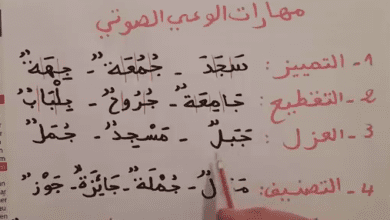 مهارات الوعي الصوتي
1- التمييز: سَجَدَ - جُمُعَةٌ - جِهَةٌ
2- التقطيع: جَامِعَةٌ - جُرُوحٌ - جِلْبَابٌ
3- العزل: جَبَلٌ - مَسْجِدٌ - جُمَلٌ
4- التصنيف: مَنْزِلٌ - جُمْلَةٌ - جَائِزَةٌ - جَوْزٌ